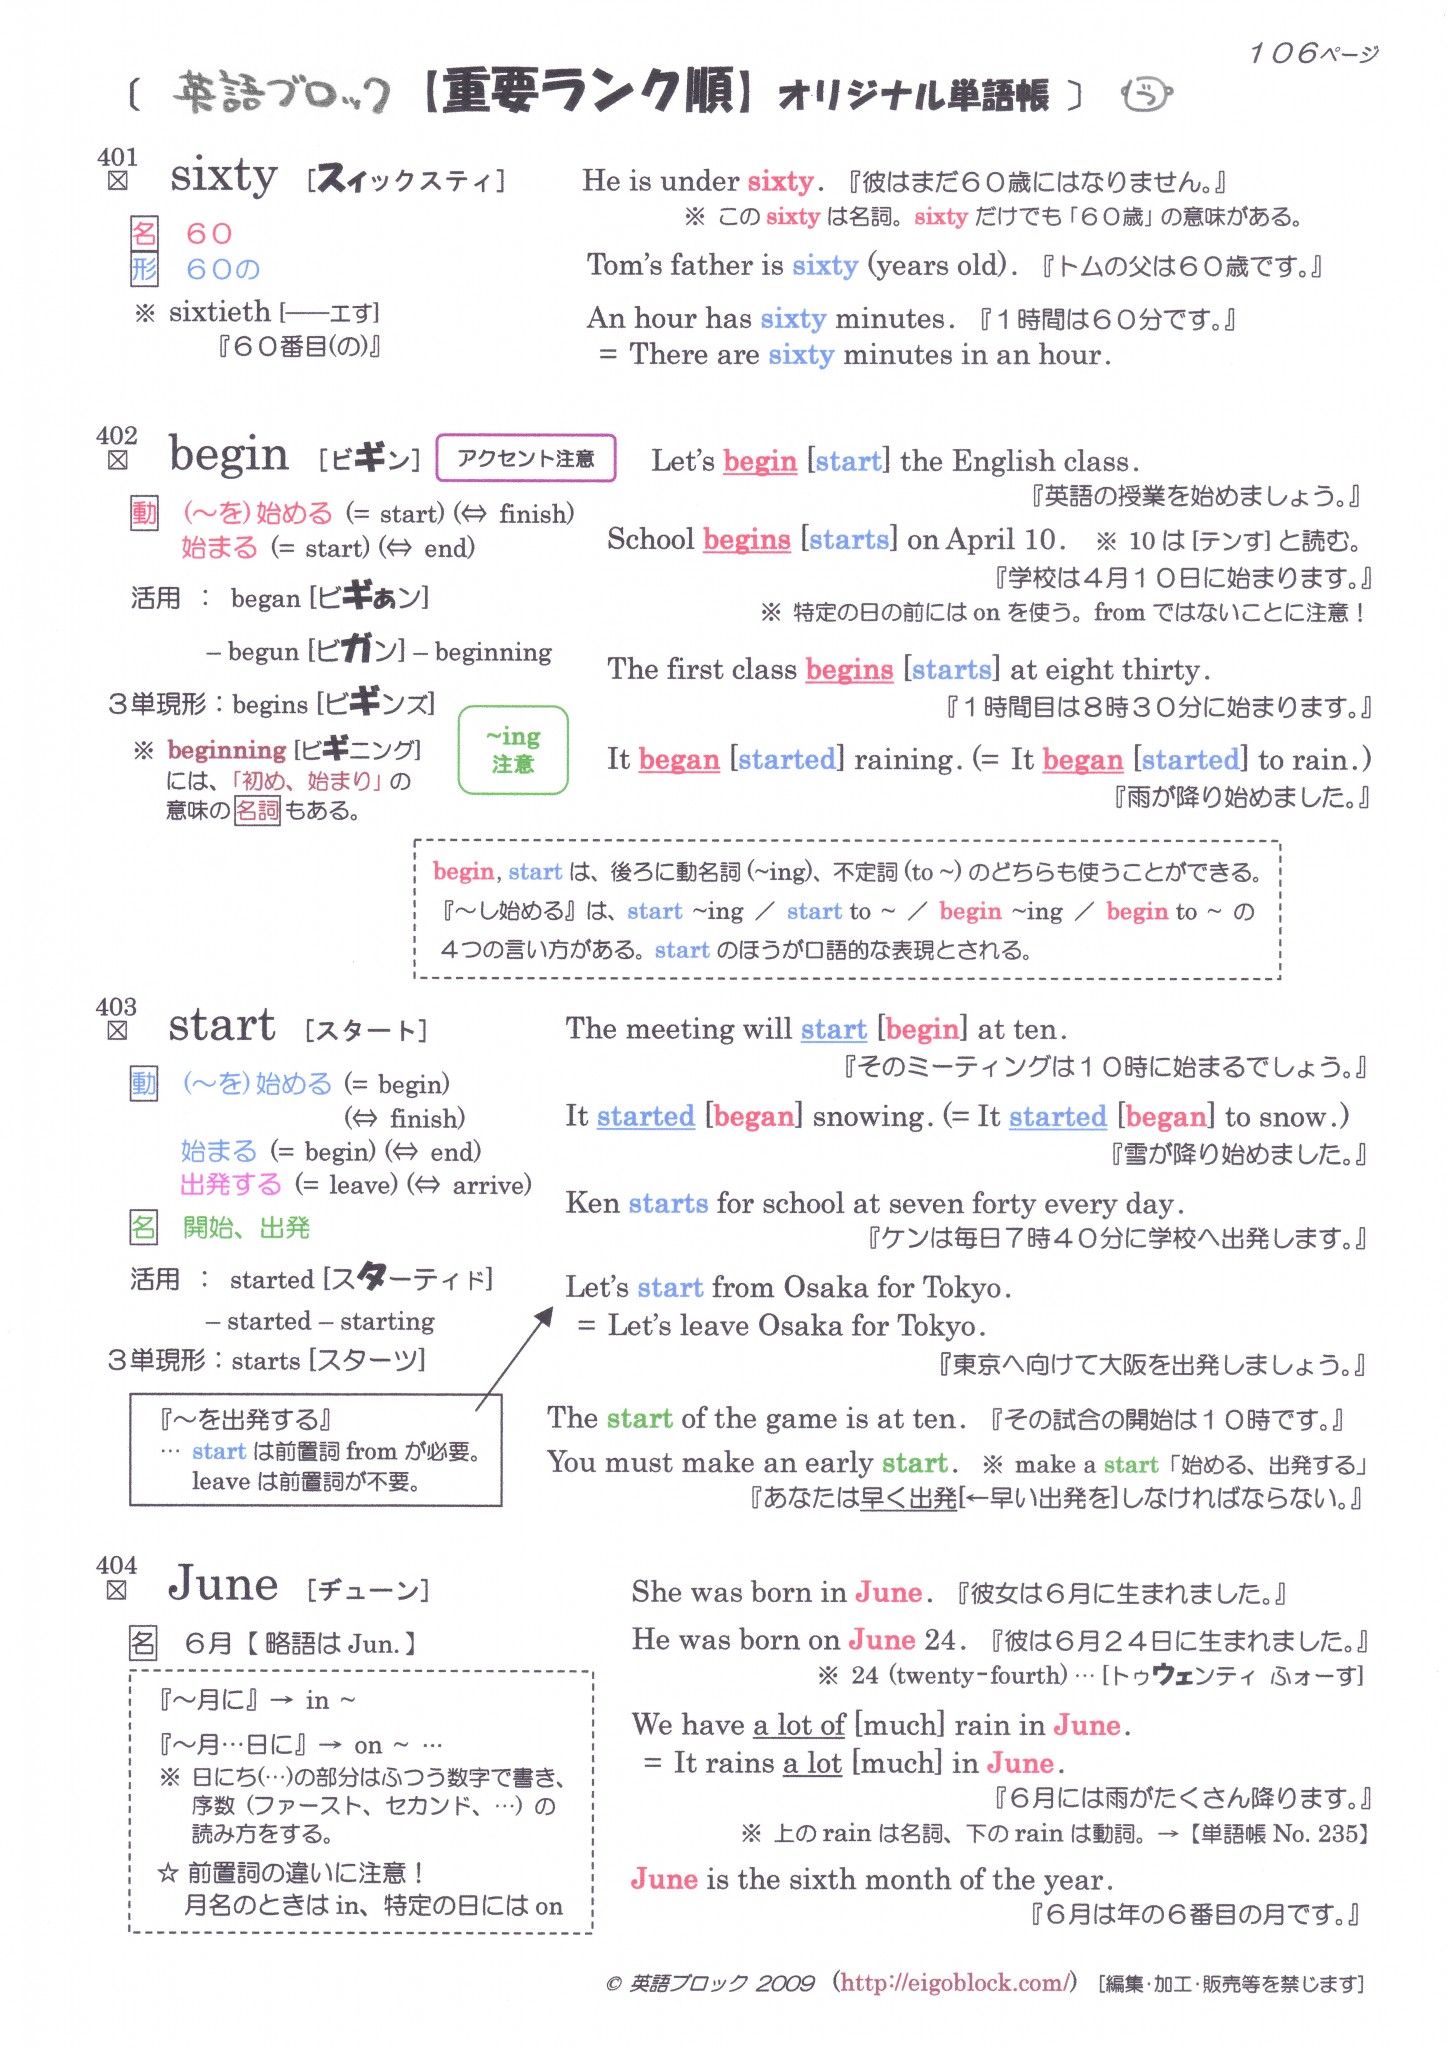 106ページ
〔 英語ブロック【重要ランク順】オリジナル単語帳 〕 う
401
☒ sixty [スィックスティ]
名 60
形 60の
※ sixtieth [――エす]
『60番目(の)』
He is under sixty. 『彼はまだ60歳にはなりません。』
※ この sixty は名詞。sixty だけでも「60歳」の意味がある。
Tom's father is sixty (years old). 『トムの父は60歳です。』
An hour has sixty minutes. 『1時間は60分です。』
= There are sixty minutes in an hour.
402
☒ begin [ビギン] アクセント注意
動 (～を)始める (= start) (⇔ finish)
始まる (= start) (⇔ end)
活用 : began [ビギぁン]
– begun [ビガン] – beginning
3単現形：begins [ビギンズ]
※ beginning [ビギニング]
には、「初め、始まり」の
意味の名詞もある。
~ing
注意
Let's begin [start] the English class.
『英語の授業を始めましょう。』
School begins [starts] on April 10. ※ 10 は [テンす] と読む。
『学校は4月10日に始まります。』
※ 特定の日の前には on を使う。from ではないことに注意！
The first class begins [starts] at eight thirty.
『1時間目は8時30分に始まります。』
It began [started] raining. (= It began [started] to rain.)
『雨が降り始めました。』
begin, start は、後ろに動名詞 (~ing)、不定詞 (to ~) のどちらも使うことができる。
『～し始める』は、start ~ing ／ start to ~ ／ begin ~ing ／ begin to ~ の
4つの言い方がある。start のほうが口語的な表現とされる。
403
☒ start [スタート]
動 (～を)始める (= begin)
(⇔ finish)
始まる (= begin) (⇔ end)
出発する (= leave) (⇔ arrive)
名 開始、出発
活用 : started [スターティド]
– started – starting
3単現形：starts [スターツ]
『～を出発する』
… start は前置詞 from が必要。
leave は前置詞が不要。
The meeting will start [begin] at ten.
『そのミーティングは10時に始まるでしょう。』
It started [began] snowing. (= It started [began] to snow.)
『雪が降り始めました。』
Ken starts for school at seven forty every day.
『ケンは毎日7時40分に学校へ出発します。』
Let's start from Osaka for Tokyo.
= Let's leave Osaka for Tokyo.
『東京へ向けて大阪を出発しましょう。』
The start of the game is at ten. 『その試合の開始は10時です。』
You must make an early start. ※ make a start「始める、出発する」
『あなたは早く出発[←早い出発を]しなければならない。』
404
☒ June [ヂューン]
名 6月【 略語は Jun. 】
『～月に』→ in ~
『～月…日に』→ on ~ …
※ 日にち(…)の部分はふつう数字で書き、
序数 (ファースト、セカンド、…) の
読み方をする。
☆ 前置詞の違いに注意！
月名のときは in、特定の日には on
She was born in June. 『彼女は6月に生まれました。』
He was born on June 24. 『彼は6月24日に生まれました。』
※ 24 (twenty-fourth) … [トゥウェンティ ふォーす]
We have a lot of [much] rain in June.
= It rains a lot [much] in June.
『6月には雨がたくさん降ります。』
※ 上の rain は名詞、下の rain は動詞。→【単語帳 No. 235】
June is the sixth month of the year.
『6月は年の6番目の月です。』
© 英語ブロック 2009 (http://eigoblock.com/) [編集・加工・販売等を禁じます]